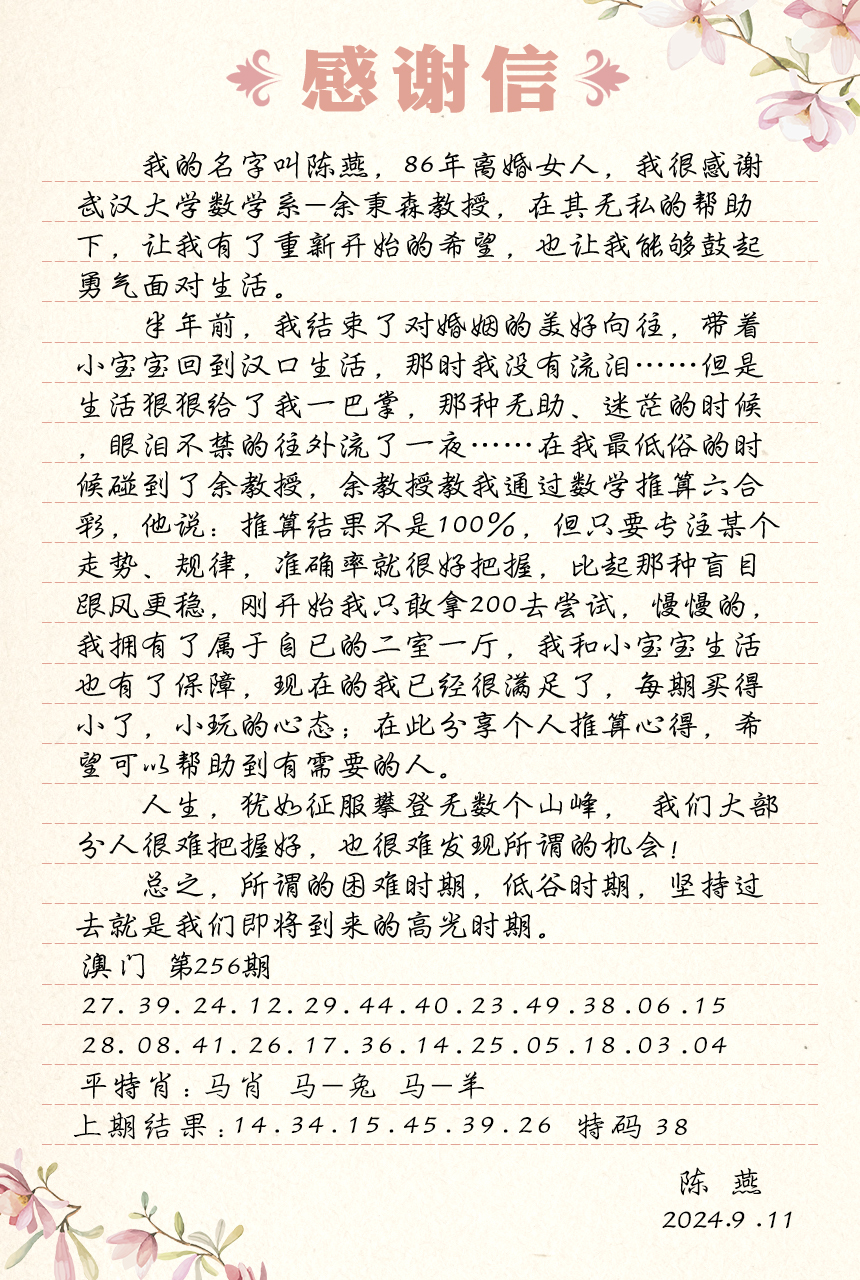 感谢信
我的名字叫陈燕，86年离婚女人，我很感谢
武汉大学数学系—余秉森教授，在其无私的帮助
下，让我有了重新开始的希望，也让我能够鼓起
勇气面对生活。
半年前，我结束了对婚姻的美好向往，带着
小宝宝回到汉口生活，那时我没有流泪……但是
生活狠狠给了我一巴掌，那种无助、迷茫的时候
，眼泪不禁的往外流了一夜……在我最低俗的时
候碰到了余教授，余教授教我通过数学推算六合
彩，他说：推算结果不是100%，但只要专注某个
走势、规律，准确率就很好把握，比起那种盲目
跟风更稳，刚开始我只敢拿200去尝试，慢慢的，
我拥有了属于自已的二室一厅，我和小宝宝生活
也有了保障，现在的我已经很满足了，每期买得
小了，小玩的心态；在此分享个人推算心得，希
望可以帮助到有需要的人。
人生，犹如征服攀登无数个山峰， 我们大部
分人很难把握好，也很难发现所谓的机会！
总之，所谓的困难时期，低谷时期，坚持过
去就是我们即将到来的高光时期。
澳门 第256期
27.39.24.12.29.44.40.23.49.38.06.15
28.08.41.26.17.36.14.25.05.18.03.04
平特肖：马肖 马—兔 马—羊
上期结果：14.34.15.45.39.26 特码 38
陈 燕
2024.9.11